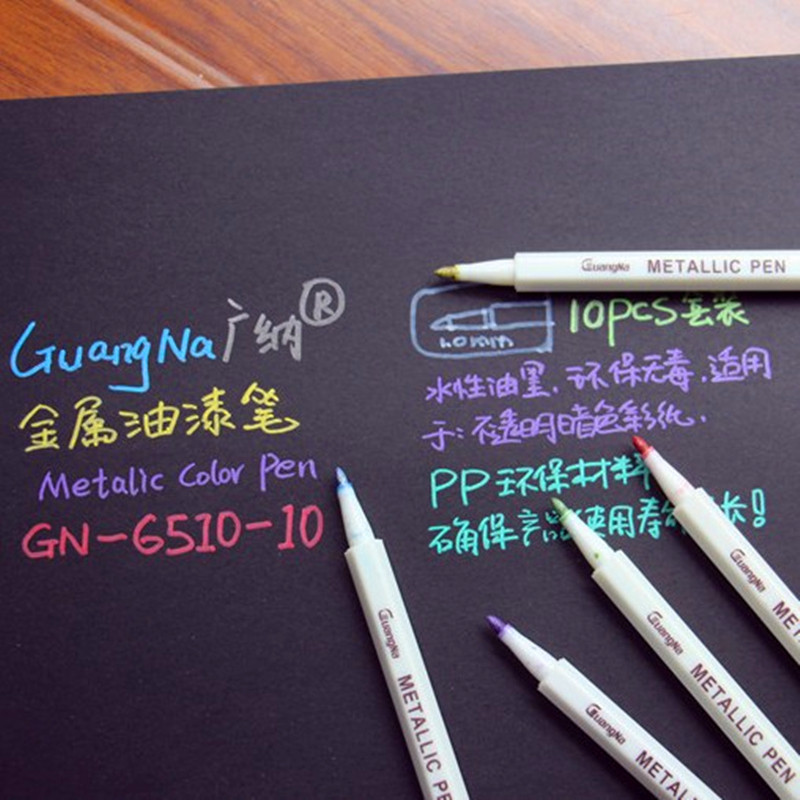 GuangNa广纳®
金属油漆笔
Metalic Color Pen
GN-6510-10
10pcs套装
水性油墨,环保无毒,适用
于:不透明暗色彩纸.
PP环保材料
确保产品使用寿 长!
GuangNa METALLIC PEN
GuangNa METALLIC PE
GuangNa METALLIC PEN
GuangNa METALL
GuangNa MET